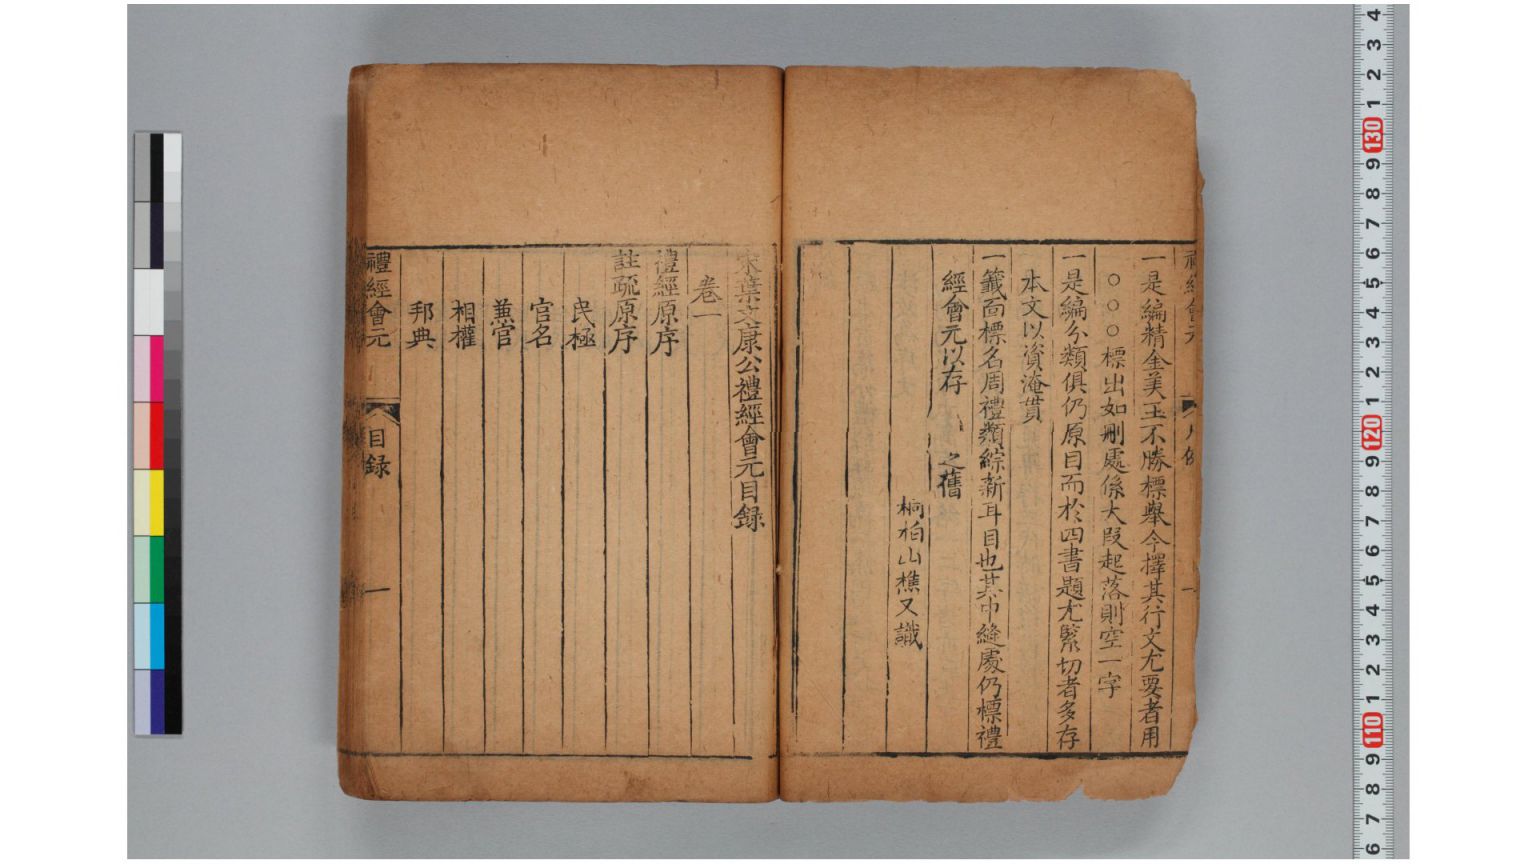 一是編精金美玉不勝標舉今擇其行文尤要者用
○○○標出如刪處係大段起落則空一字
一是編分類俱仍原目而於四書題尤緊切者多存
本文以資淹貫
一籤面標名周禮類綜新耳目也其中縫處仍標禮
經會元以存之舊
桐柏山樵又識
宋葉文康公禮經會元目録
卷一
禮經原序
註疏原序
民極
官名
兼官
相權
邦典
禮經會元
目録
一
4
3
2
1
130
9
8
7
6
5
4
3
2
1
120
9
8
7
6
5
4
3
2
1
110
9
8
7
6